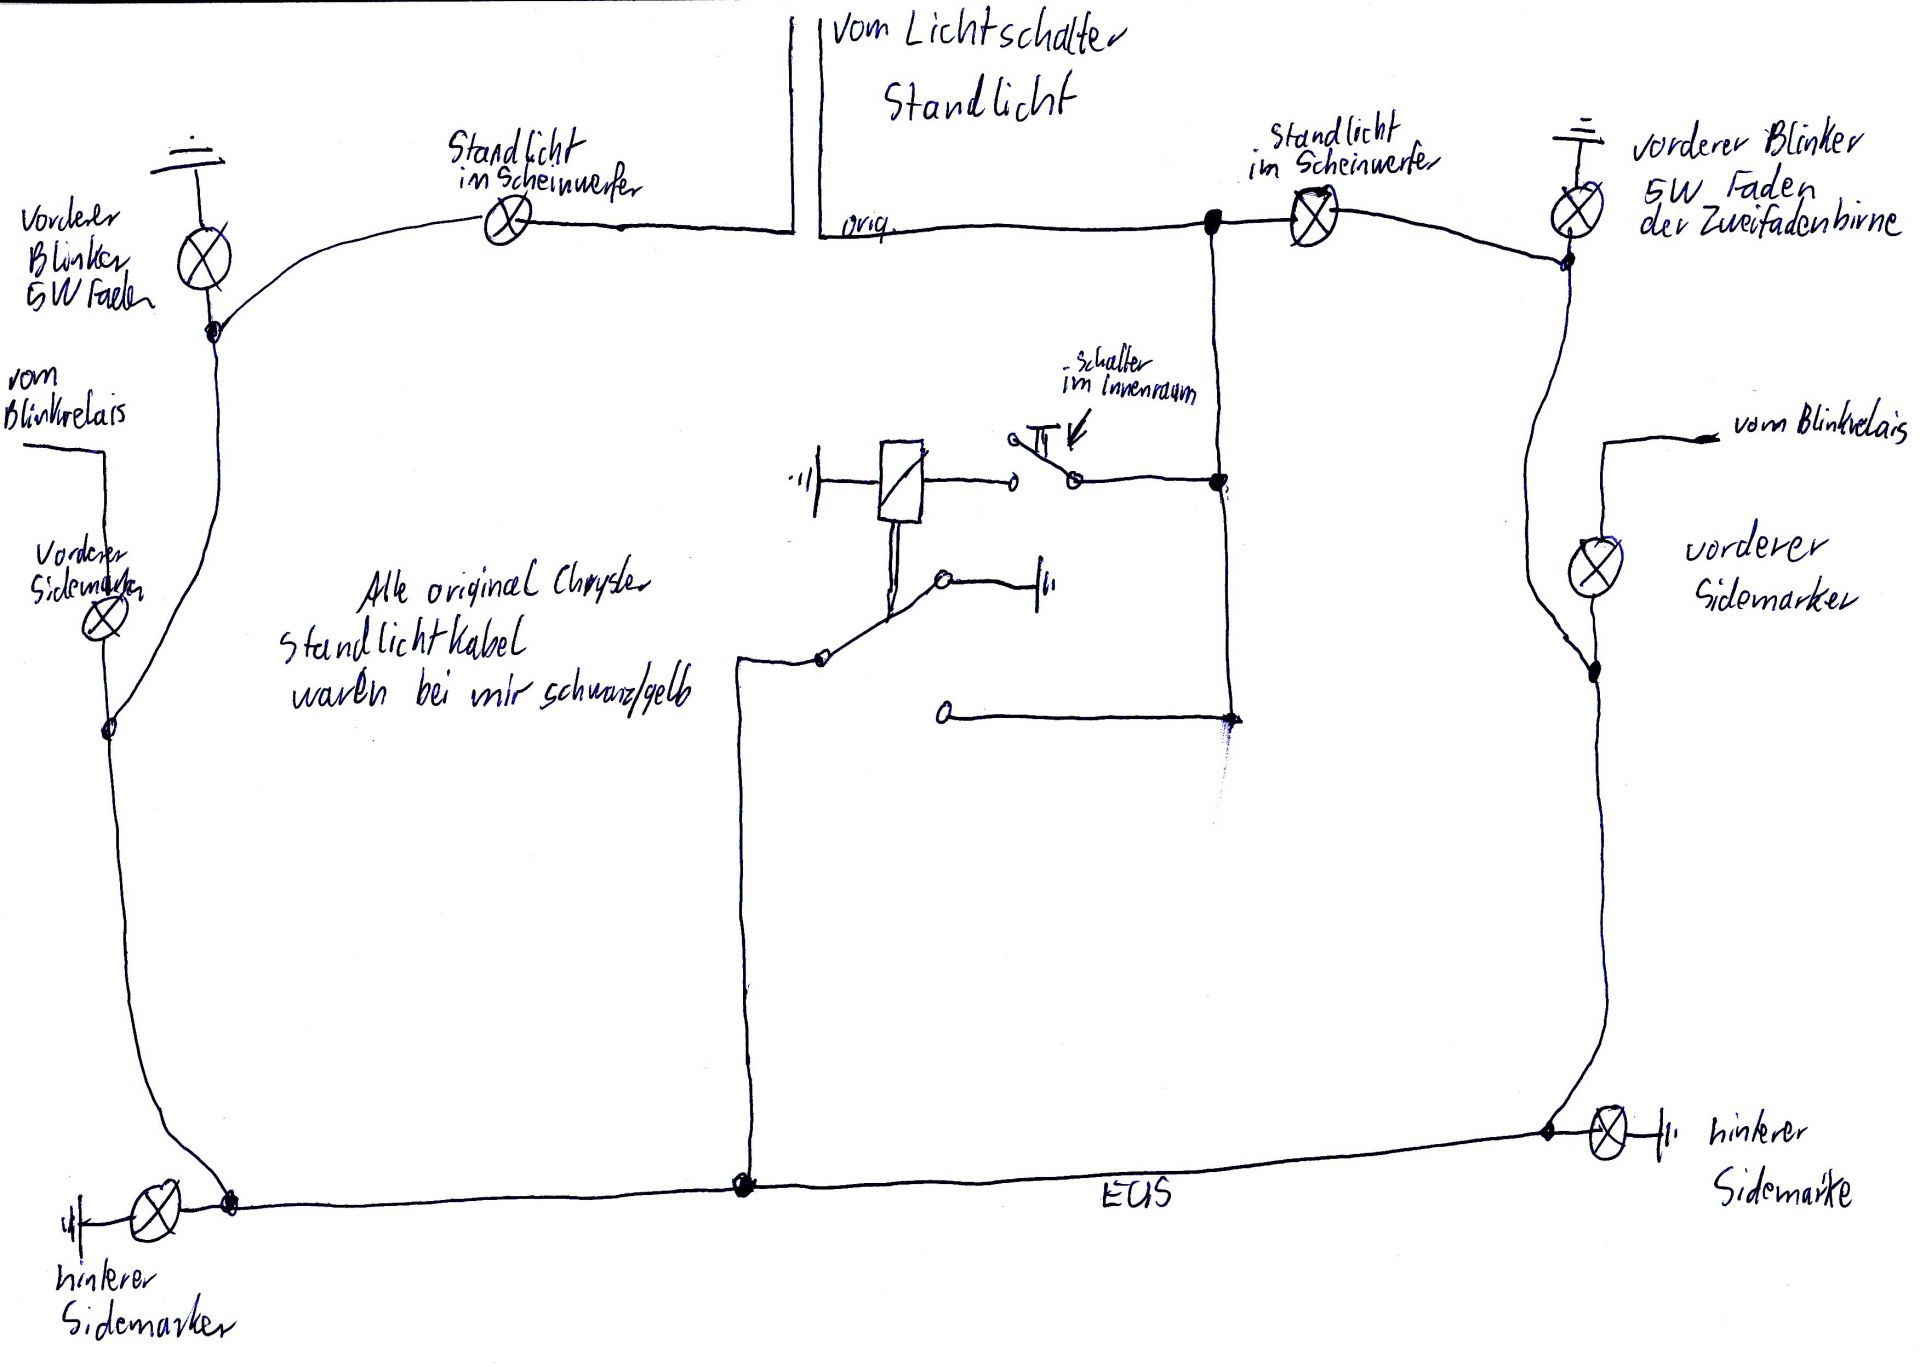 vom Lichtschalter
Standlicht
Standlicht
im Scheinwerfer
Standlicht
im Scheinwerfer
vorderer Blinker
5W Faden
der Zweifadenbirne
Vorderer
Blinker
5W Faden
orig.
vom
Blinkrelais
Schalter
im Innenraum
vom Blinkrelais
Vorderer
Sidemarker
vorderer
Sidemarker
Alle original Chrysler
Standlichtkabel
waren bei mir schwarz/gelb
hinterer
Sidemarke
hinterer
Sidemarker